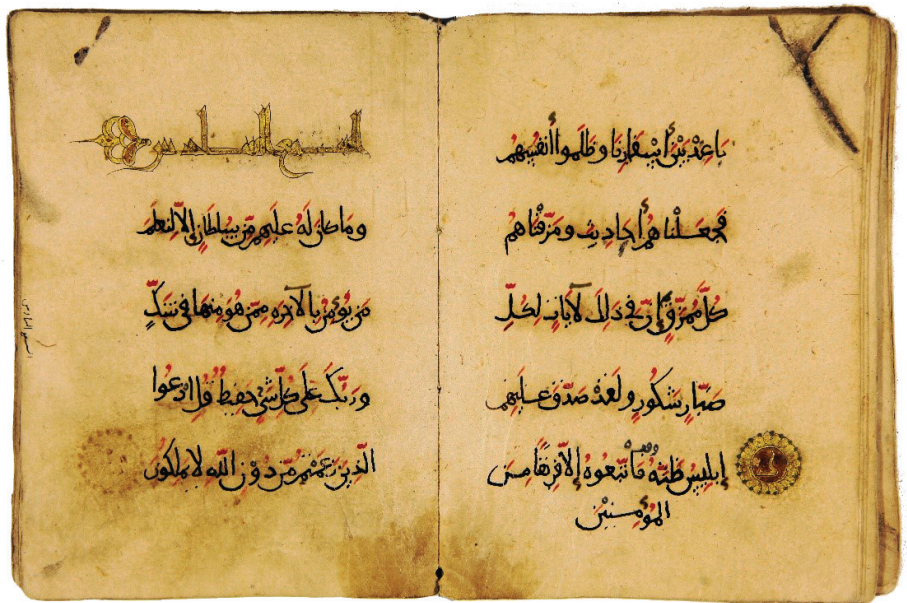 بَاعِدْ بَيْنَ أَسْفَارِنَا وَظَلَمُوا أَنْفُسَهُمْ
فَجَعَلْنَاهُمْ أَحَادِيثَ وَمَزَّقْنَاهُمْ
كُلَّ مُمَزَّقٍ إِنَّ فِي ذَلِكَ لَآيَاتٍ لِكُلِّ
صَبَّارٍ شَكُورٍ وَلَقَدْ صَدَّقَ عَلَيْهِمْ
إِبْلِيسُ ظَنَّهُ فَاتَّبَعُوهُ إِلَّا فَرِيقًا مِنَ
الْمُؤْمِنِينَ
السبع السادس
وَمَا كَانَ لَهُ عَلَيْهِمْ مِّنْ سُلْطَانٍ إِلَّا لِنَعْلَمَ
مَنْ يُؤْمِنُ بِالْآخِرَةِ مِمَّنْ هُوَ مِنْهَا فِي شَكٍّ
وَرَبُّكَ عَلَى كُلِّ شَيْءٍ حَفِيظٌ قُلِ ادْعُوا
الَّذِينَ زَعَمْتُمْ مِّنْ دُونِ اللَّهِ لَا يَمْلِكُونَ